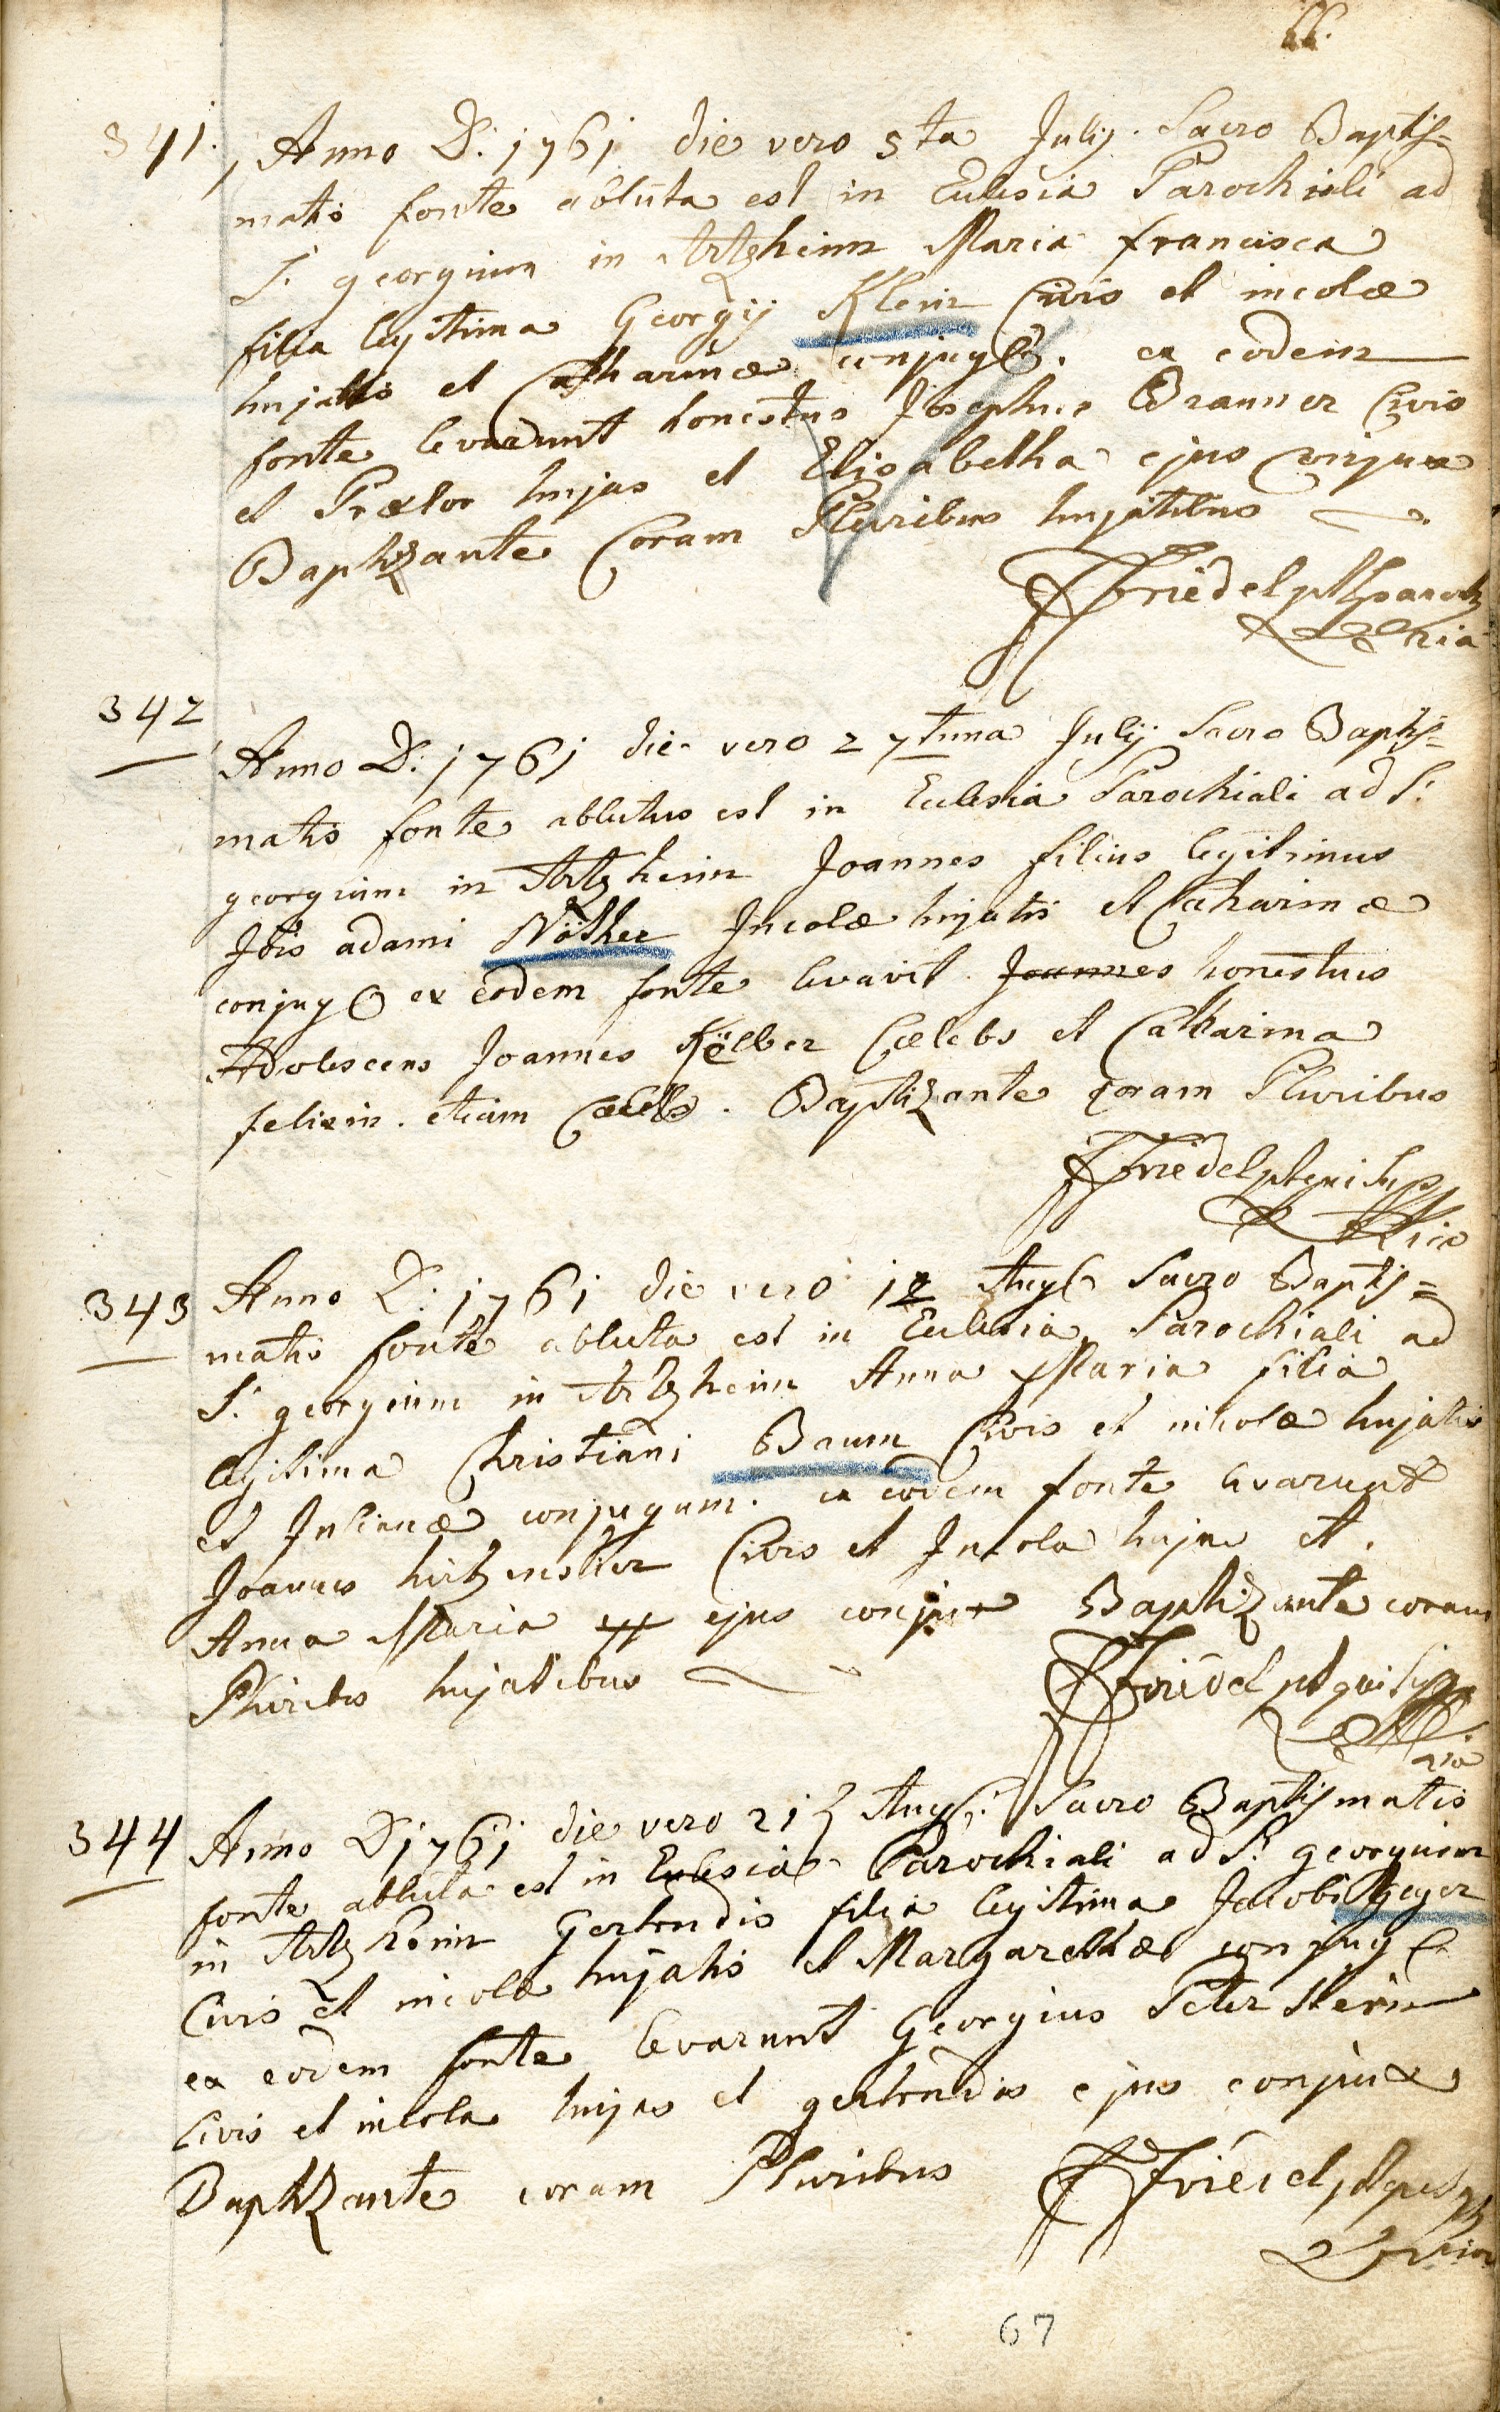 66.
341. Anno D: 1761 die vero 5ta Julij. Sacro Baptis=
matis fonte abluta est in Eclesia Parochiali ad
S. georgium in Artzheim Maria francisca
filia legitima Georgij Klein Civis et incolæ
hujatis et Catharinæ conjug. ex eodem
fonte levarunt honestus Josephus Brauner Civis
et Prætor hujas et Elisabetha ejus conjux
Baptizante Coram Pluribus hujatibus
Friedel
342 Anno D: 1761 die vero 27tima Julij Sacro Baptis=
matis fonte ablutus est in Eclesia Parochiali ad S:
georgium in Artzheim Joannes filius legitimus
Jois adami Nöther Jncolæ hujatis et Catharinæ
conjug ex eodem fonte levavit Joannes honestus
Adolescens Joannes Kölber Cælebs et Catharina
felixin. etiam Cælebs. Baptizante coram Pluribus
Friedel
343 Anno D: 1761 die vero 12 Aug Sacro Baptis=
matis fonte abluta est in Eclesia Parochiali ad
S. georgium in Artzheim Anna Maria filia
legitima Christiani Baum Civis et incolæ hujatis
et Julianæ conjugum. ex eodem fonte levarunt
Joannes Civis et Jncola hujas et.
Anna Maria ejus conjux Baptizante coram
Pluribus hujatibus
Friedel
344 Anno D 1761 die vero 21 Aug: Sacro Baptismatis
fonte abluta est in Eclesia Parochiali ad S: georgium
in Artzheim Gertrudis filia legitima Jacobi Geger
Civis et incolæ hujatis et Margarethæ conjug
ex eodem fonte levarunt Georgius Peter Stern
Civis et incola hujas et gertrudis ejus conjux
Baptizante coram Pluribus
Friedel
67